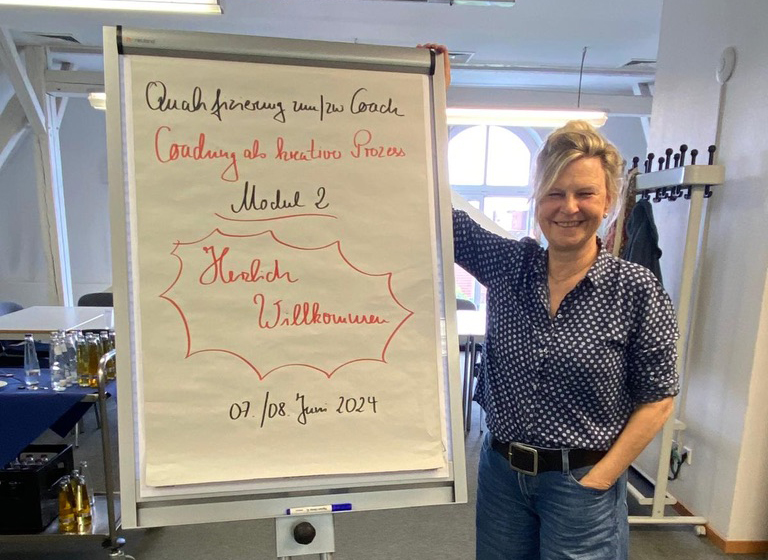 neuland
Qualifizierung zum/zur Coach
Coaching als kreativer Prozess
Modul 2
Herzlich
Willkommen
07./08. Juni 2024